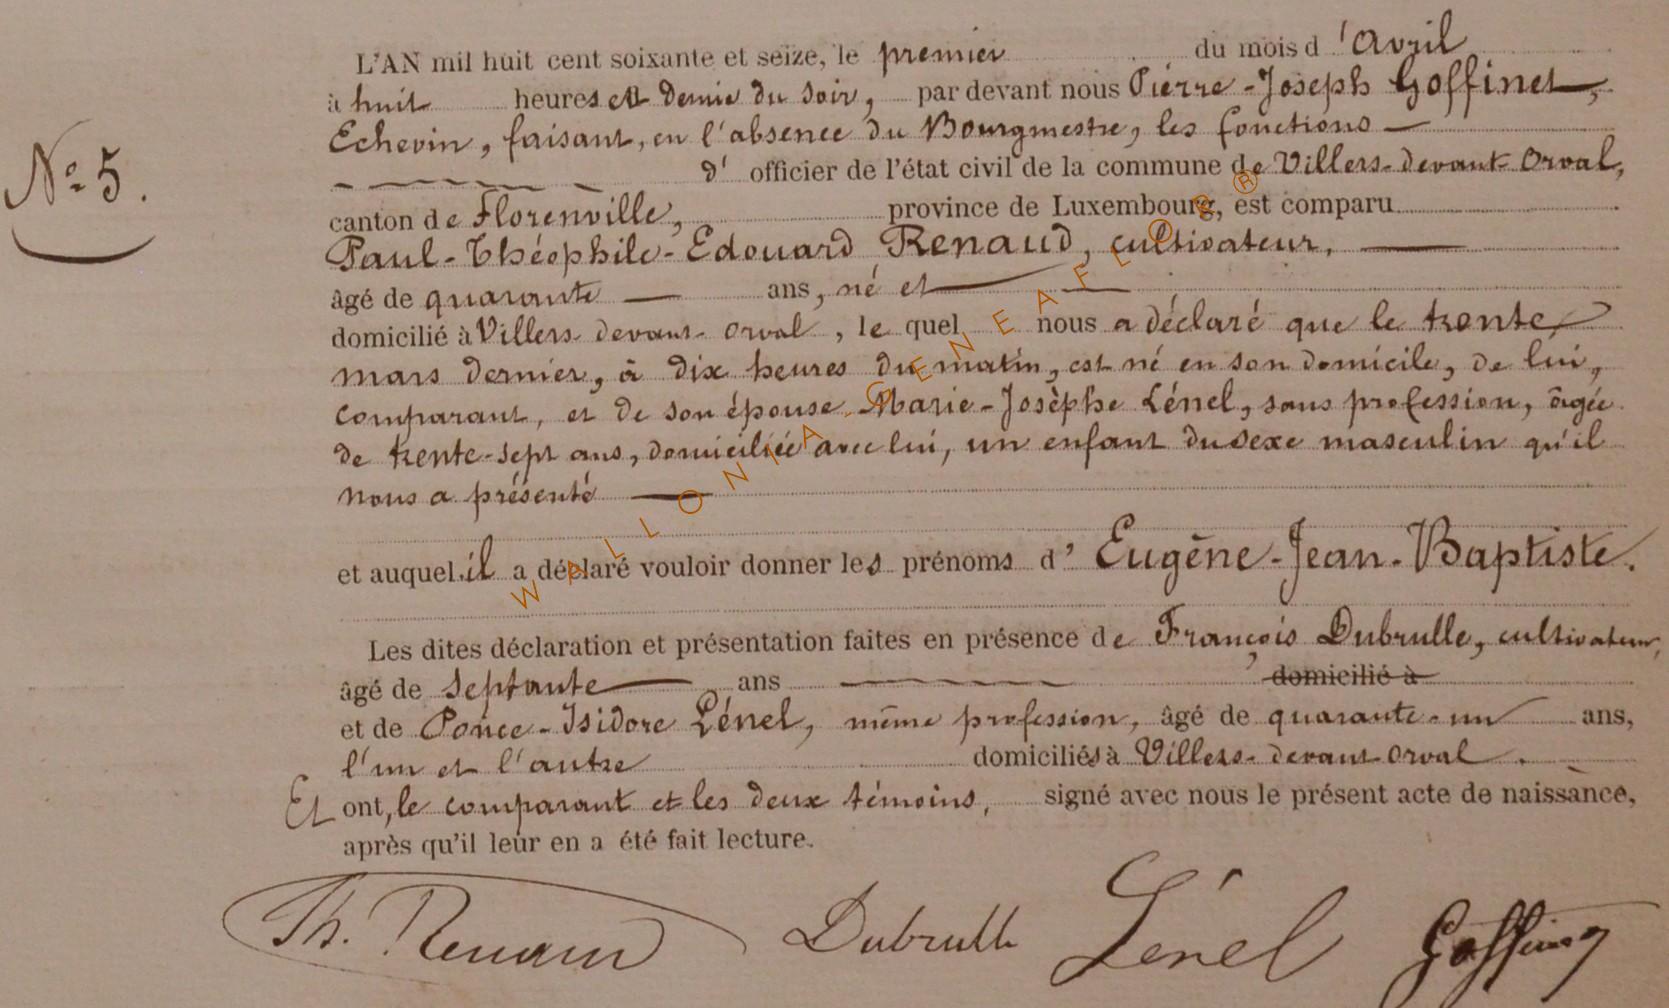 L'AN mil huit cent soixante et seize, le premier du mois d'Avril
à huit heures et demie du soir, par devant nous Pierre-Joseph Goffinet,
Echevin, faisant, en l'absence du Bourgmestre, les fonctions
N° 5.
d' officier de l'état civil de la commune de Villers-devant-Orval,
canton de Florenville, province de Luxembourg, est comparu
Paul-Théophile-Edouard Renaud, cultivateur,
âgé de quarante ans, né et
domicilié à Villers-devant-Orval, le quel nous a déclaré que le trente
mars dernier, à dix heures du matin, est né en son domicile, de lui,
comparant, et de son épouse Marie-Josèphe Lénel, sans profession, âgée
de trente-sept ans, domiciliée avec lui, un enfant du sexe masculin qu'il
nous a présenté
et auquel il a déclaré vouloir donner les prénoms d' Eugène-Jean-Baptiste.
Les dites déclaration et présentation faites en présence de François Dubrulle, cultivateur,
âgé de septante ans domicilié à
et de Ponce-Isidore Lénel, même profession, âgé de quarante-un ans,
l'un et l'autre domiciliés à Villers-devant-Orval.
Et ont, le comparant et les deux témoins, signé avec nous le présent acte de naissance,
après qu'il leur en a été fait lecture.
Th. Renaud Dubrulle Lénel Goffinet
WALLONIA-GENEAFLOR®